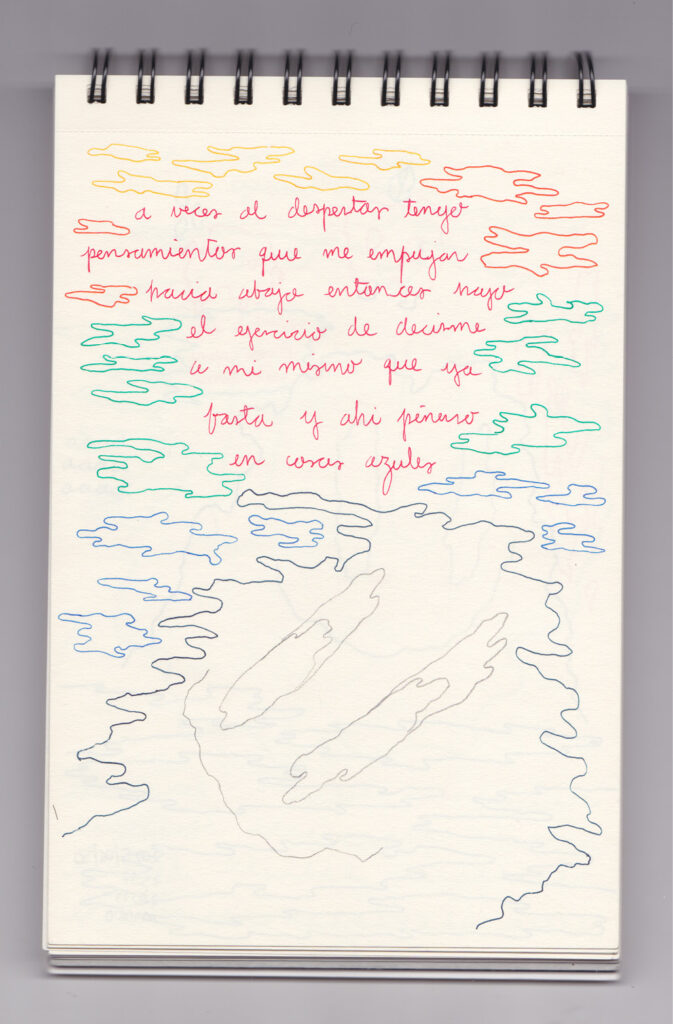 a veces al despertar tengo
pensamientos que me empujan
hacia abajo entonces hago
el ejercicio de decirme
a mi mismo que ya
basta y ahi pienso
en cosas azules